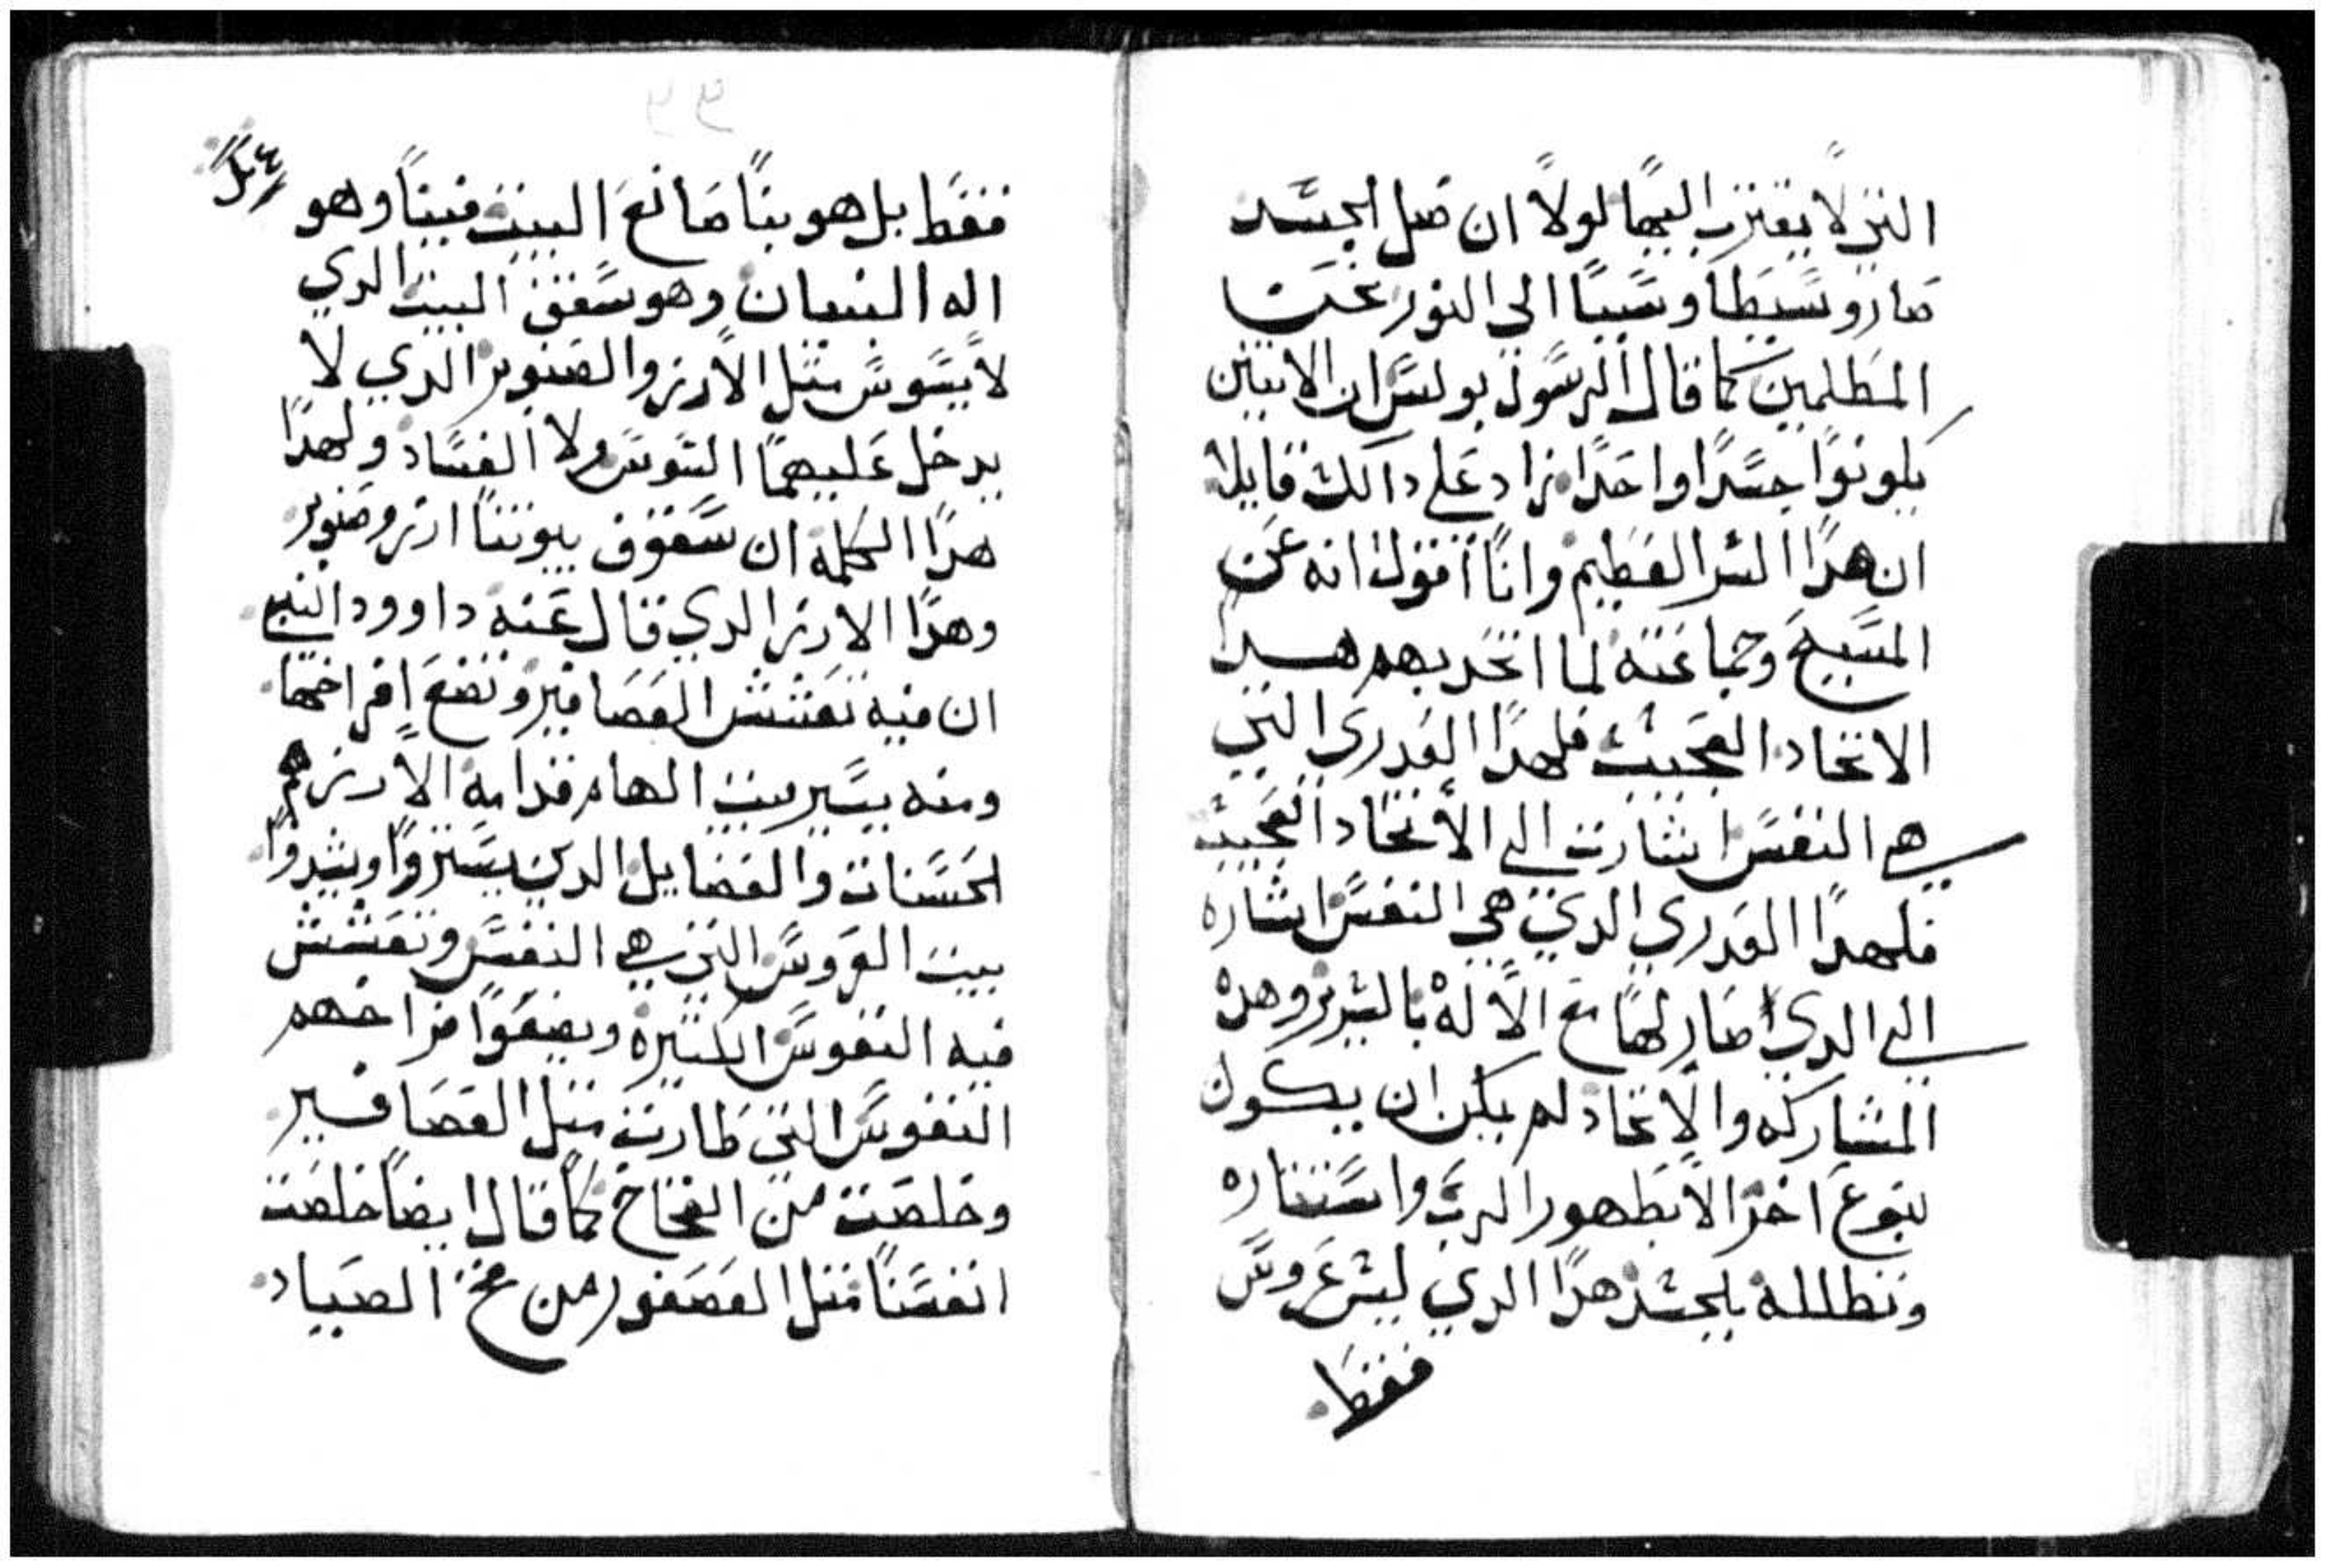 التي لا يقترب اليها لولا ان ضل الجسد
صار وسيطا وسببا الى النور تحت
المظلمين كما قال الرسول بولس ان الاتنين
يكونوا جسدا واحدا زاد على دالك قايلا
ان هدا السر العظيم وانا اقول انه عن
المسيح وجماعته لما اتحد بهم هدا
الاتحاد العجيب فلهدا العدري التي
هي النفس اشارت الى الاتحاد العجيب
فلهدا العدري الدي هي النفس اشاره
الى الدي صار لها مع الاله بالسر وهده
المشاركه والاتحاد لم يكن ان يكون
بنوع اخر الا بظهور الرب واستناره
وتظلله بالجسد هدا الدي ليس عروس
فقط
فقط بل هو بنا صانع البيت فبينا وهو
اله البنيان وهو سقف البيت الدي
لا يسوس متل الارز والصنوبر الدي لا
يدخل عليهما السوس ولا الفساد ولهدا
هدا الكلمه ان سقوف بيوتنا ارز وصنوبر
وهدا الارز الدي قال عنه داوود النبي
ان فيه تعشش العصافير وتضع افراخها
ومنه يسير بيت الهام قدامه الارز هم
الحسنات والفضايل الدين يستروا ويشدوا
بيت العروس التي هي النفس وتعشش
فيه النفوس الكتيره ويضعوا فراخهم
النفوس التي طارت متل العصافير
وخلصت من الفخاخ كما قال ايضا خلصت
انفسنا متل العصفور من فخ الصياد